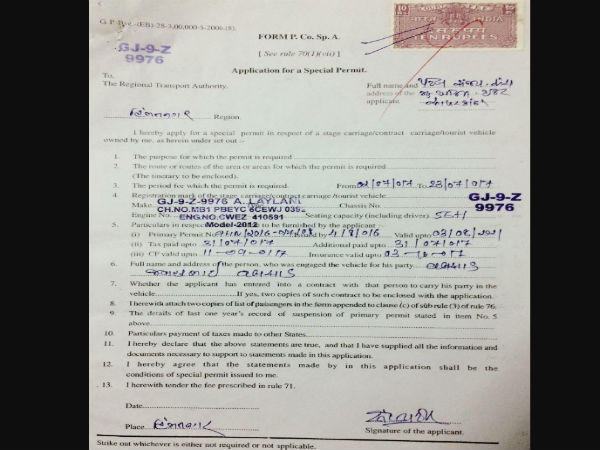 G.P.-Bve.-(EB)-28-3,00,000-5-2006-(8).
10 Rs. INDIA 10 Rs.
TEN RUPEES
GJ-9-Z
9976
FORM P. Co. Sp. A.
[ See rule 70(1)(vii) ]
Application for a Special Permit.
To,
The Regional Transport Authority.
Full name and
address of the
applicant.
હિંમતનગર Region.
I hereby apply for a special permit in respect of a stage carriage/contract carriage/tourist vehicle
owned by me. as herein under set out :-
1. The purpose for which the permit is required
2. The route or routes of the area or areas for which the permit is required.
(The tinerary to be enclosed).
3. The period fee which the permit is required. From 01/07/017 To 23/07/017
4. Registration mark of the stage carriage/contract carriage/tourist vehicle.
GJ-9-Z-9976 A. LAYLAN
GJ-9-Z
9976
Make Chassis No.
CH.NO.MB1 PBEYC 6CEWJ
Engine No. ENG.NO.CWEZ 410591 Seating capacity (including driver)
5. Particulars in respect Model-2012 to be furnished by the applicant :
(i) Primary Permit No. issued by 4/8/016 Valid upto 03/08/2021
(ii) Tax paid upto 31/07/017 Additional paid upto 31/07/017
(iii) CF valid upto 11-09-017 Insurance valid upto
6. Full name and address of the person, who was engaged the vehicle for his party
7. Whether the applicant has entered into a contract with that person to carry his party in the
vehicle If yes, two copies of such contract to be enclosed with the application.
8. I herewith attach two copies of list of paisengers in the form appended to clause (c) of sub rule (3) of rule 76.
9. The details of last one year's record of suspension of primary permit stated in item No. 5
above
10. Particulars payment of taxes made to other States.
11. I hereby declare that the above statements are true, and that I have supplied all the information and
documents necessary to support to statements made in this application.
12. I hereby agree that the statements made by in this application shall be the
conditions of special permit issued to me.
13. I herewith tender the fee prescribed in rule 71.
Date
Place હિંમતનગર
Signature of the applicant.
Strike out whichever is either not required or not applicable.